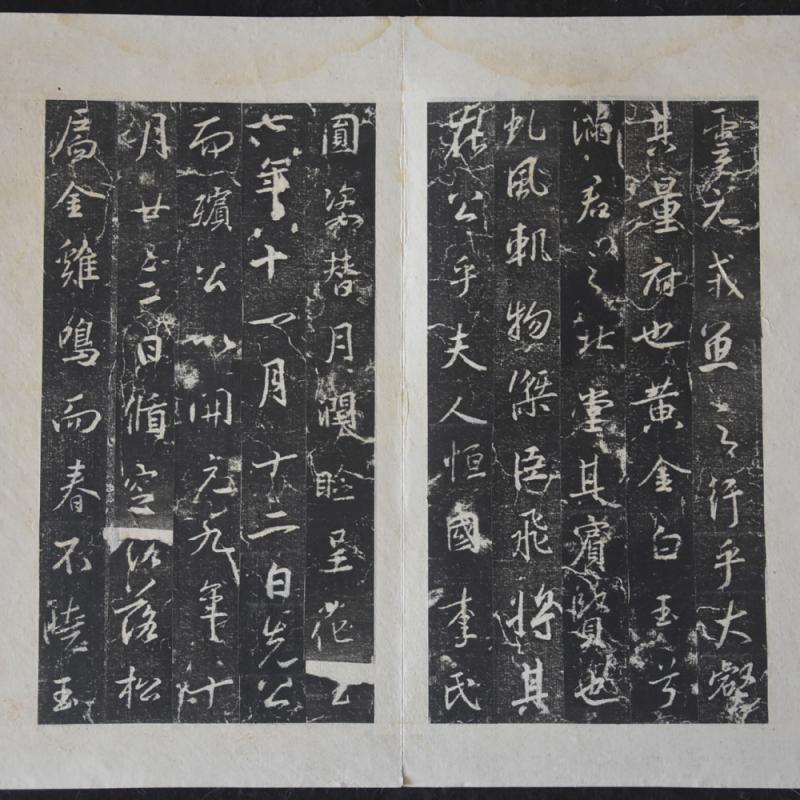 雲元戎之行乎大壑
其量府也黄金白玉兮
滿君之北堂其賓賢也
虬風軌物傑臣飛將其
在公乎夫人恒國李氏
圓姿替月潤臉呈花以
年十一月十二日先公
而殯公以開元九年十
月廿三日循窆落松
扃金雞鳴而春不曉玉